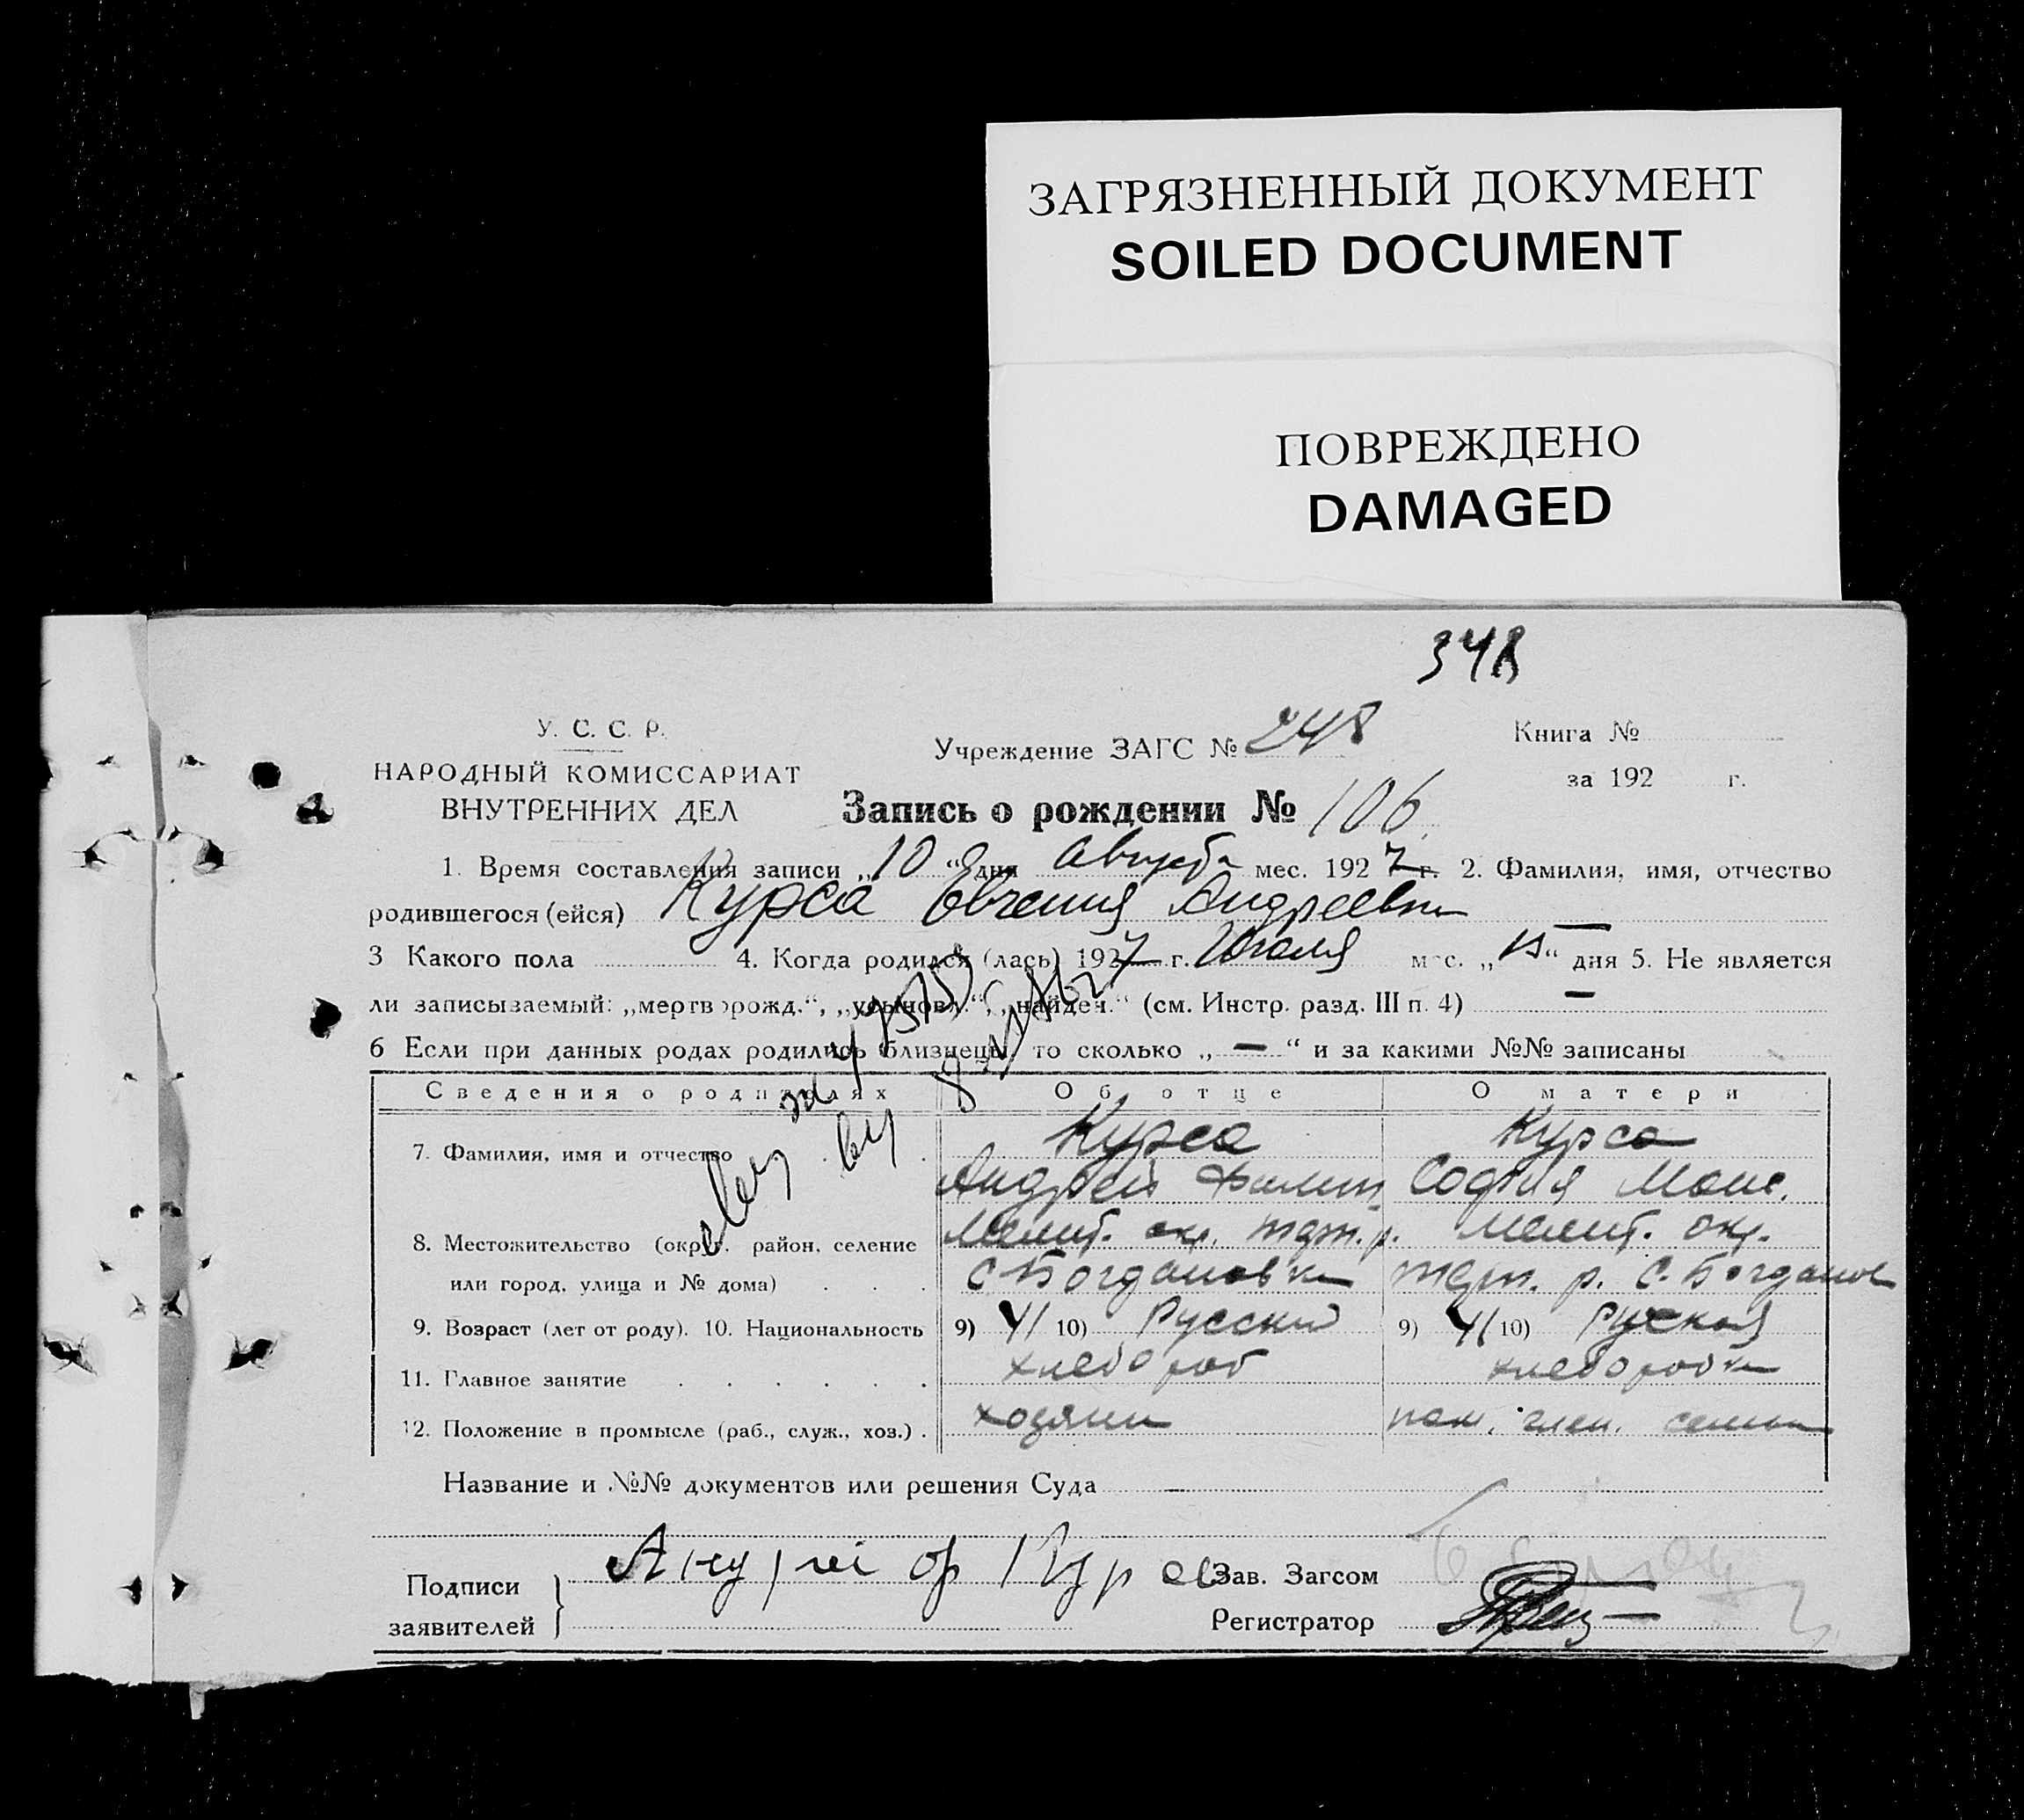 ЗАГРЯЗНЕННЫЙ ДОКУМЕНТ
SOILED DOCUMENT
ПОВРЕЖДЕНО
DAMAGED
348
У. С. С. Р.
НАРОДНЫЙ КОМИССАРИАТ
ВНУТРЕННИХ ДЕЛ
Учреждение ЗАГС № 248
Книга №
за 192 г.
Запись о рождении № 106
1. Время составления записи „10“ дня Августа мес. 1927 г. 2. Фамилия, имя, отчество
родившегося (ейся) Курса Евгения Андреевна
3 Какого пола 4. Когда родился (лась) 1927 г. Июля мес. „15“ дня 5. Не является
ли записываемый: „мертворожд.“, „усыновл.“, „найден.“ (см. Инстр. разд. III п. 4) —
6 Если при данных родах родились близнецы, то сколько „—“ и за какими №№ записаны
Сведения о родителях Об отце О матери
7. Фамилия, имя и отчество Курса Курса
Андрей Филип. София Моис.
8. Местожительство (округ. район, селение Мелит. окр. р. Мелит. окр.
или город, улица и № дома) с. Богдановка р. с. Богданов
9. Возраст (лет от роду). 10. Национальность 9) 41 10) Русский 9) 41 10) Руская
11. Главное занятие хлебороб хлеборобка
12. Положение в промысле (раб., служ., хоз.) ходяин пом. член. семьи
Название и №№ документов или решения Суда —
Подписи
заявителей
Зав. Загсом
Регистратор